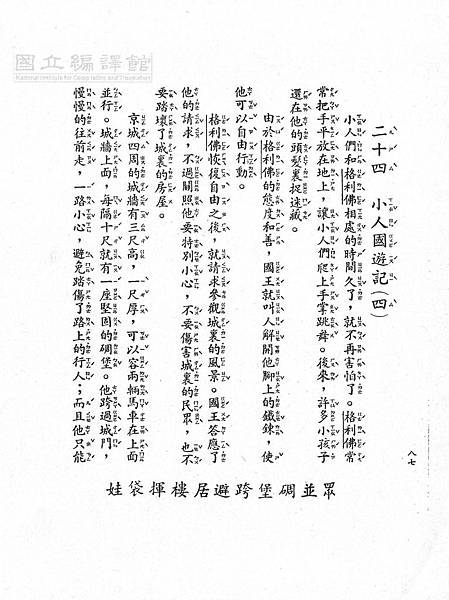 國立編譯館
National Institute for Compilation and Translation
二十四　小人國遊記(四)
小人們和格利佛相處的時間久了，就不再害怕了。格利佛常
常把手平放在地上，讓小人們爬上手掌跳舞。後來，許多小孩子
還在他的頭髮裏捉迷藏。
由於格利佛的態度和善，國王就叫人解開他腳上的鐵鍊，使
他可以自由行動。
格利佛恢復自由之後，就請求參觀城裏的風景。國王答應了
他的請求，不過關照他要特別小心，不要傷害城裏的民眾，也不
要踏壞了城裏的房屋。
京城四周的城牆有三尺高，一尺厚，可以容兩輛馬車在上面
並行。城牆上面，每隔十尺就有一座堅固的碉堡。他跨過城門，
慢慢的往前走，一路小心，避免踏傷了路上的行人；而且他只能
眾並碉堡跨避居樓揮袋娃
八七